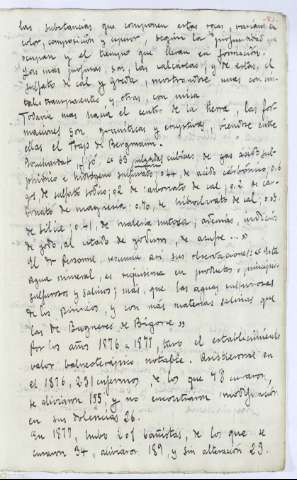 las substancias que componen estas rocas varían en
color, composición y espesor según la profundidad que
ocupan y el tiempo que llevan en formación.
Las más profusas, son, las calcáreas; y de éstas, el
sulfato de cal y greda, mostrándose unas con
transparentes y otras, con mica.
Todavía más hacia el centro de la tierra, las for
maciones son graníticas y eruptivas, viéndose entre
ellas el Trapp de Bergmann.
65 pulgadas cúbicas de gas ácido sul
phídrico e hidrógeno sulfurado, 0.44, de ácido carbónico, 0.6
gs. de sulfato sódico; 02 de carbonato de cal; 0.2 de car
bonato de magnesia; 0.10, de
de sílice; 0.41, de materia untosa; además, indicios
de yodo, al estado de yoduro, de azufre..."
El Dr. Perssome, resume así sus observaciones: "Esta
agua mineral, es riquísima en productos y principios
sulfurosos y salinos; más, que las aguas sulfurosas
de los Pirineos, y con más materias salinas que
las de Bagneres de Bigorre."
Por los años 1876 a 1877, tuvo el establecimiento
valor balneoterápico notable. Asistieron en
el 1876, 231 enfermos, de los que 48 curaron,
se aliviaron 155 y no encontraron modificación
en sus dolencias 26.
En 1877, hubo 201 bañistas, de los que se
curaron 94, aliviaron 189 y sin alteración 23.